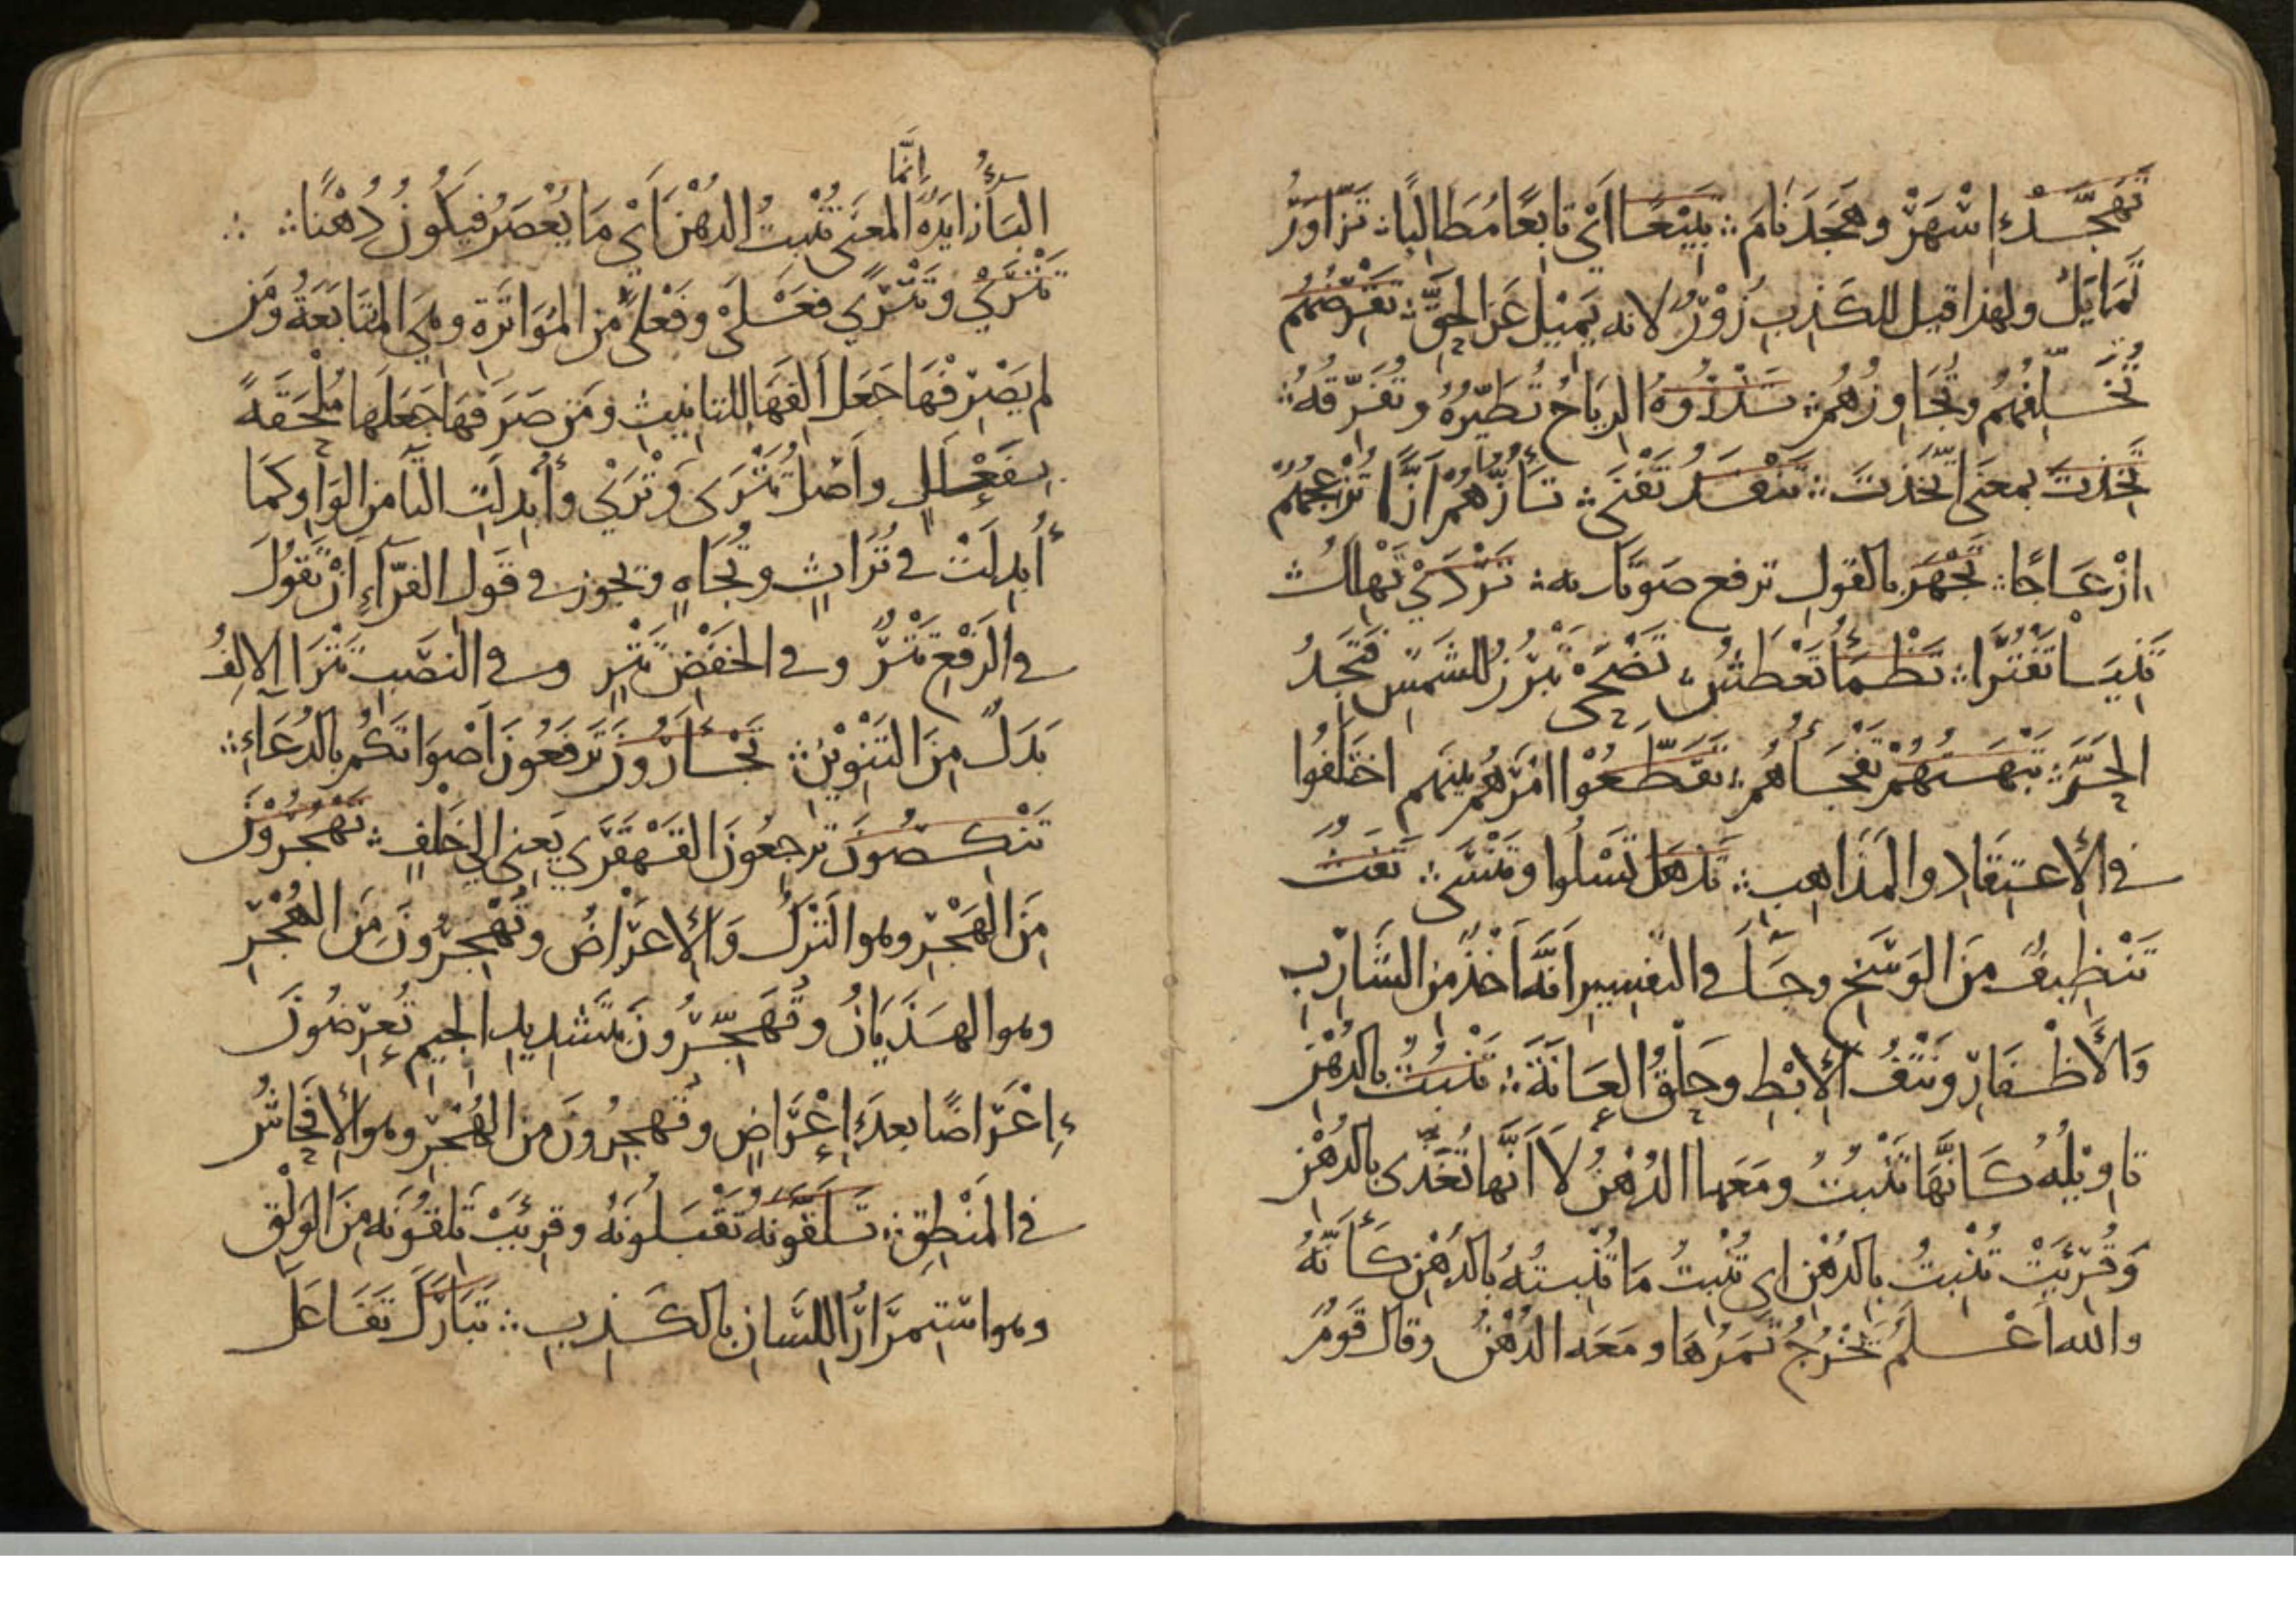 تَهَجَّدْ اِسْهَرْ وهَجَدَ نَامَ ؞ تَبِيْعًا اَيْ تابِعًا مُطَالِبًا ؞ تَزَّاوَرُ
تَمَايَلُ ولهذا قيل للكَذِبِ زُوْرٌ لانه يَمِيْلُ عَنِ الحِقِّ ؞ تَقْرِضُهُمْ
تُخَلِّفُهُمْ وتُجَاوِزُهُمْ ؞ تَذْرُوْهُ الرِيَاحُ تُطَيِّرُهُ وتُفَرِّقُهُ ؞
تَخِذْتَ بمعنَى اتَّخَذْتَ ؞ تَنْفَدُ تَفْنَى ؞ تَأُزُّهُمْ اَزًّا تُزْعِجُهُمْ
اِزْعَاجًا ؞ تَجْهَرْ بالقولِ ترفع صَوْتَك به ؞ تَرْدَىْ تَهْلِكُ ؞
تَنِيَا تَفْتُرَا ؞ تَظْمَأُ تَعْطَشُ ؞ تَضْحَىْ تَبْرُزُ للشمسِ فتَجِدُ
الحَرَّ ؞ تَبْهَتُهُمْ تَفْجَأُهُمْ ؞ تَقَطَّعُوْا اَمْرَهُمْ بينهم اختَلَفُوا
في الاعتِقَادِ والمَذَاهِبِ ؞ تَذْهَلُ تَسْلُوا وتَنْسَى ؞ تَفَثَ
تَنْظِيفٌ مِنَ الوَسَخِ وجَآ في التفسيرِ اَنَّه اَخْذٌ مِن الشَارِبِ
وَالاَظْفَارِ ونَتْفُ الاِبْطِ وحَلْقُ العَانَةِ ؞ تَنْبُتُ بالدُهْنِ
تاوِيْلُهُ كَاَنَّهَا تَنْبُتُ ومَعَها الدُهْنُ لَا اَنَّهَا تُغَذَّى بالدُهْنِ
وَقُرِئَتْ تُنْبِتُ بِالدُهْنِ اي تُنْبِتُ مَا تُنْبِتُهُ بِالدُهْنِ كَأَنَّهُ
والله اَعْلَمُ تُخْرِجُ ثَمَرَهَا ومَعَه الدُهْنُ وقال قَوْمٌ
اِنَّمَا
البَآءُ زايدَةٌ المعنَى تُنْبِتُ الدُهْنَ اَيْ مَا يُعْصَرُ فيَكُونُ دُهْنًا ؞
تَتْرَىْ وتَتْرًى فَعْلَىْ وفَعْلًى مِن المُوَاتَرَةِ وهِيَ المُتَابَعَةُ ومَن
لم يَصْرِفْهَا جَعَلَ اَلِفَهَا للتانيثِ ومَن صَرَفَهَا جَعَلَهَا مُلْحَقَةً
بِفَعْلَلٍ واَصْلُ تَتْرَى وَتْرَىْ وأُبْدِلَتِ التَّآ مِن الوَاوِ كمَا
أُبْدِلَتْ في تُرَاثٍ وتُجَاهٍ ويجوز في قَولِ الفَرَّآءِ اَنْ تَقُولَ
في الرَفْعِ تَتْرٌ وفي الخَفْضِ تَتْرٍ وفي النَصْبِ تَتْرًا الالِفُ
بَدَلٌ مِنَ التَنْوِيْنِ ؞ تَجْأَرُوْنَ تَرْفَعُونَ اَصْوَاتَكُمْ بِالدُعَآءِ ؞
تَنْكِصُونَ تَرجِعُونَ القَهْقَرَى يَعني الى خَلْفٍ ؞ تَهْجُرُوْنَ
مِنَ الهَجْرِ وهو التَرْكُ وَالاِعْرَاضُ وتُهْجِرُونَ مِنَ الهُجْرِ
وهو الهَذَيَانُ وتُهَجِّرُونَ بتَشْدِيدِ الجِيمِ تُعْرِضُونَ
اِعْرَاضًا بعدَ اِعْرَاضٍ وتُهجِرُونَ مِن الهُجْرِ وهو الاِفْحَاشُ
في المَنْطِقِ ؞ تَلَقَّوْنَهُ تَقْبَلُونَهُ وقُرِئَتْ تَلِقُوْنَه مِنَ الوَلْقِ
وهو استِمرَارُ اللِسَانِ بالكَذِبِ ؞ تَبَارَكَ تَفَاعَلَ